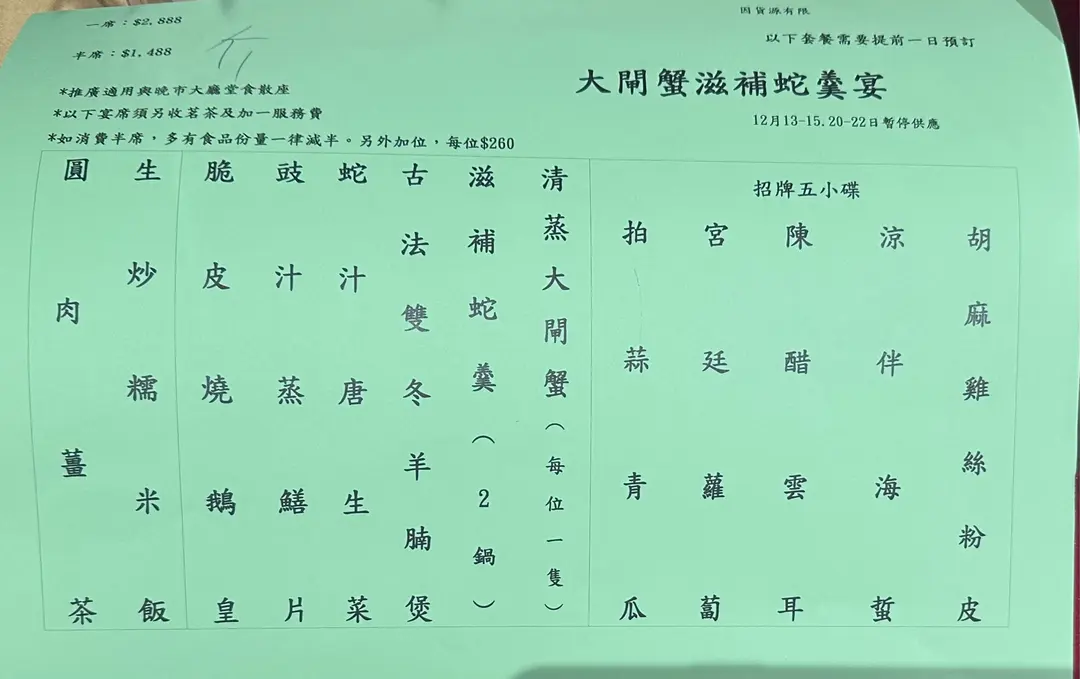 因貨源有限
以下套餐需要提前一日預訂
大閘蟹滋補蛇羹宴
12月13-15.20-22日暫停供應
一席：$2,888
半席：$1,488
*推廣適用與晚市大廳堂食散座
*以下宴席須另收茗茶及加一服務費
*如消費半席，多有食品份量一律減半。另外加位，每位$260
招牌五小碟
胡麻雞絲粉皮
涼伴海蜇
陳醋雲耳
宮廷蘿蔔
拍蒜青瓜
清蒸大閘蟹（每位一隻）
滋補蛇羹（2鍋）
古法雙冬羊腩煲
蛇汁唐生菜
豉汁蒸鱔片
脆皮燒鵝皇
生炒糯米飯
圓肉薑茶